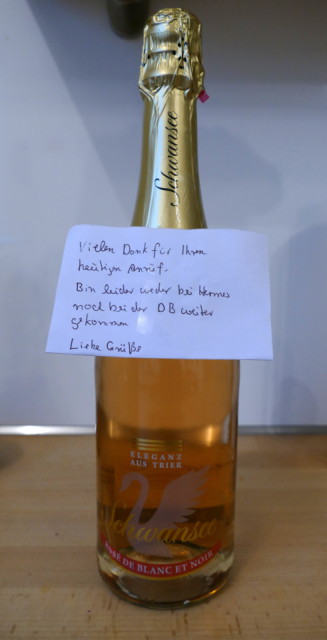 Schwansee
Vielen Dank für Ihren
heutigen Anruf.
Bin leider weder bei Hermes
noch bei der DB weiter
gekommen
Liebe Grüße
ELEGANZ
AUS TRIER
Schwansee
ROSÉ DE BLANC ET NOIR